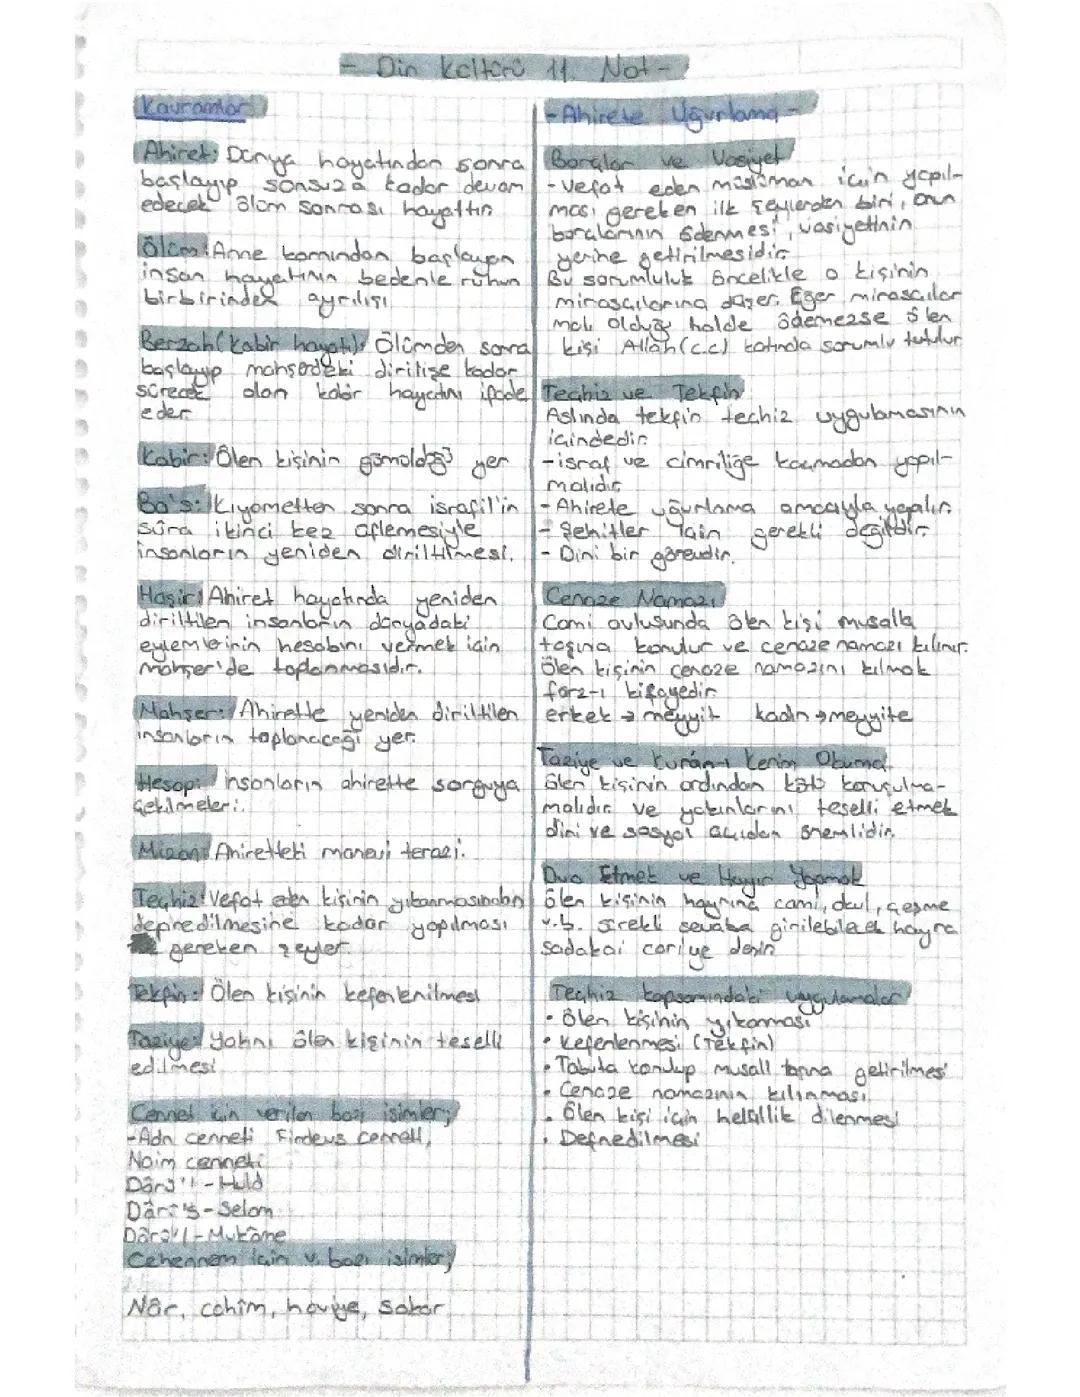 - Din kültürü 11. Not -
Kavramlar
Ahiret: Dünya hayatından sonra
başlayıp sonsuza kadar devam
edecek ölüm sonrası hayattır
Ölüm: Anne karnından başlayan
insan hayatının bedenle ruhun
birbirinden ayrılışı
Berzah (kabir hayatı): Ölümden sonra
başlayıp mahşerdeki dirilişe kadar
sürecek olan kabir hayatını ifade
eder
Kabir: Ölen kişinin gömüldüğü yer
Ba's: Kıyametten sonra israfil'in
sûra ikinci kez üflemesiyle
insanların yeniden diriltilmesi.
Haşir: Ahiret hayatında yeniden
diriltilen insanların dünyadaki
eylemlerinin hesabını vermek için
mahşer'de toplanmasıdır.
Mahşer: Ahirette yeniden diriltilen
insanların toplanacağı yer.
Hesap: insanların ahirette sorguya
çekilmeleri.
Mizan: Ahiretteki manevi terazi.
Teçhiz: Vefat eden kişinin yıkanmasından
depredilmesine kadar yapılması
gereken şeyler
Tekfin: Ölen kişinin kefenlenilmesi
Taziye: Yakını ölen kişinin teselli
edilmesi
Cennet için verilen bazı isimler;
-Adn cenneti Firdevs cenneti,
Naim cenneti
Dârü'l-Huld
Dârü's-Selam
Dârü'l-Mukâme
Cehennem için v. bazı isimler;
Nâr, cahîm, haviye, sakar
- Ahirete Uğurlama -
Borçlar ve Vasiyet
-Vefat eden müslüman için yapıl-
ması gereken ilk şeylerden biri, onun
borçlarının ödenmesi, vasiyetinin
yerine getirilmesidir.
Bu sorumluluk öncelikle o kişinin
mirasçılarına düşer. Eğer mirasçılar
malı olduğu halde ödemezse ölen
kişi Allah (c.c) katında sorumlu tutulur
Teçhiz ve Tekfin
Aslında tekfin teçhiz uygulamasının
içindedir.
-israf ve cimriliğe kaçmadan yapıl-
malıdır
- Ahirete uğurlama amacıyla yapılır.
- Şehitler için gerekli değildir.
- Dini bir görevdir.
Cenaze Namazı
Cami avlusunda ölen kişi musalla
taşına konulur ve cenaze namazı kılınır.
Ölen kişinin cenaze namazını kılmak
farz-ı kifayedir
erkek → meyyit kadın → meyyite
Taziye ve Kurân-ı Kerim Okuma
Ölen kişinin ardından kötü konuşulma-
malıdır ve yakınlarını teselli etmek
dini ve sosyal açıdan önemlidir.
Dua Etmek ve Hayır Yapmak
Ölen kişinin hayrına cami, okul, çeşme
v.b. sürekli sevaba girilebilecek hayra
sadakai cariye denir
Teçhiz kapsamındaki uygulamalar
• Ölen kişinin yıkanması
• Kefenlenmesi (Tekfin)
• Tabuta konulup musall taşına getirilmesi
• Cenaze namazının kılınması
• Ölen kişi için helallik dilenmesi
• Defnedilmesi